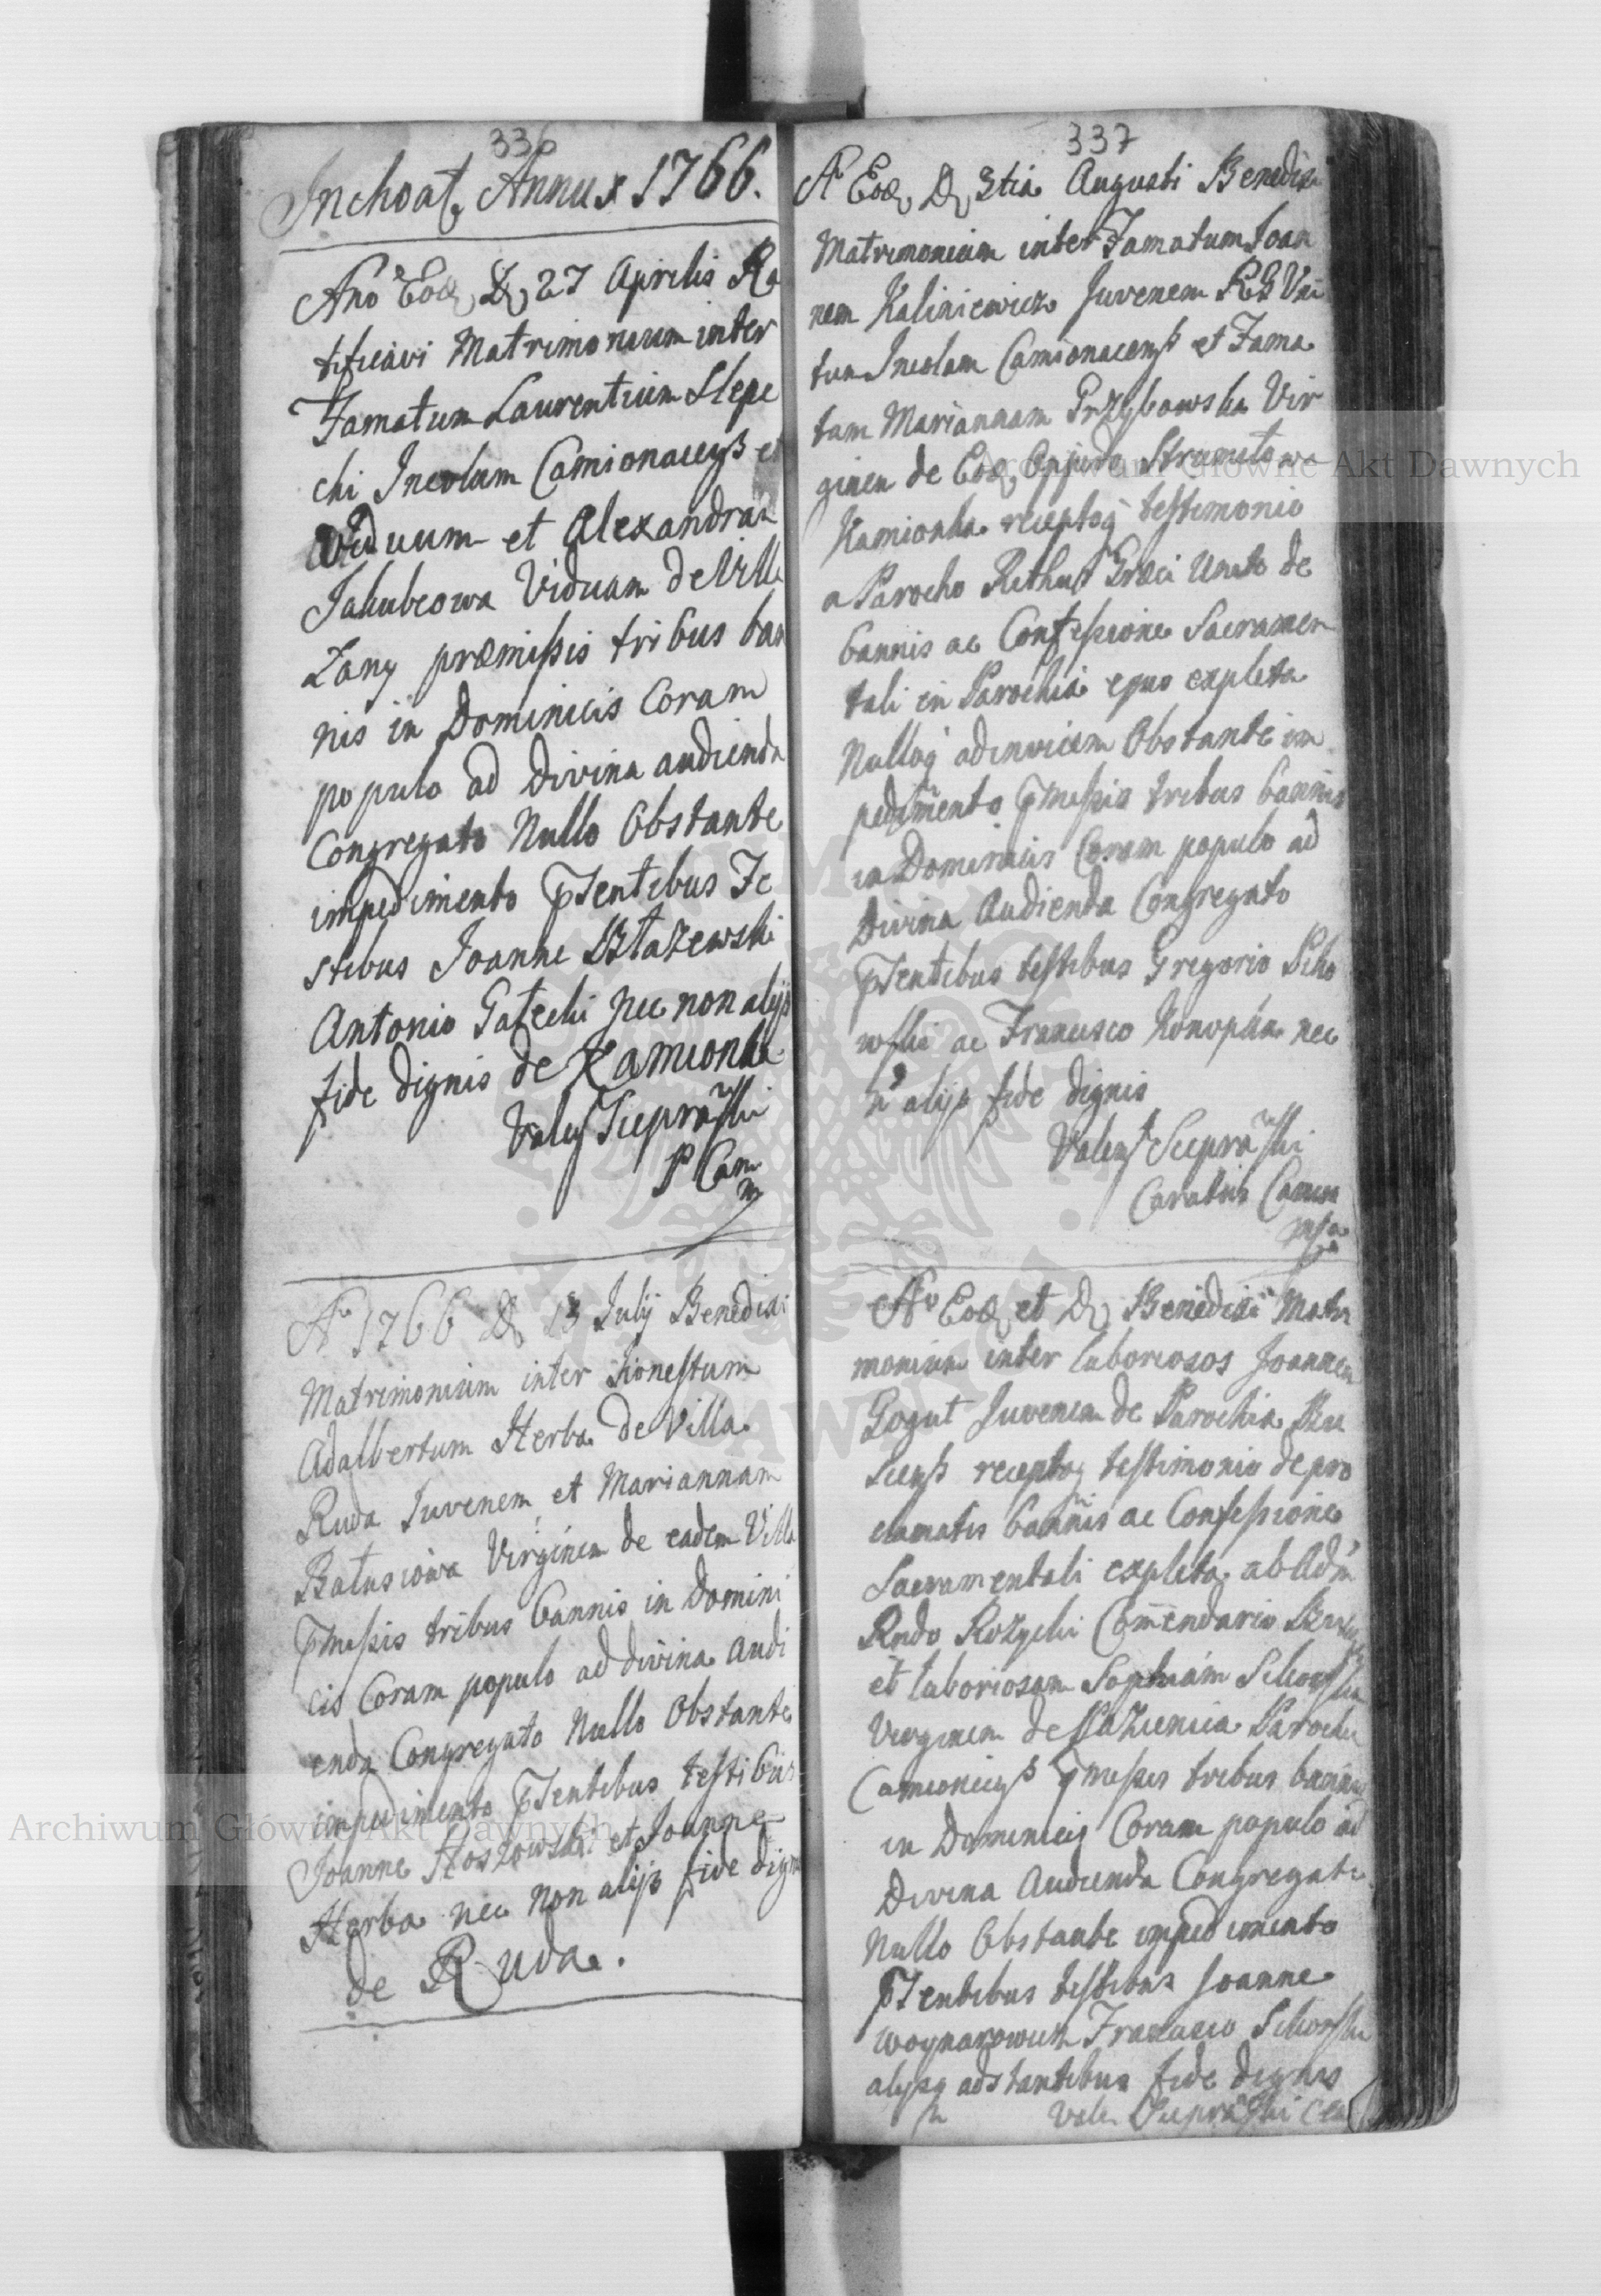 336
Inchoat. Annus 1766.
Ano Eod. D. 27 Aprilis Ra
tificavi Matrimonium inter
Famatum Laurentium Slepe
cki Incolam Camionacens et
Viduum et Alexandram
Jakubcowa Viduam de Villa
Lany præmissis tribus ban
nis in Dominicis Coram
populo ad Divina audienda
Congregato Nullo Obstante
impedimento Psentibus Te
stibus Joanne Błażewski
Antonio Gałecki nec non alijs
fide dignis de Kamionka
Valen
P Cam
A 1766 D 13 Julij Benedixi
Matrimonium inter Honestum
Adalbertum Herba de Villa
Ruda Juvenem et Mariannam
Bałusiowa Virginem de eadem Villa
Pmissis tribus bannis in Domini
cis Coram populo ad divina Audi
enda Congregato Nullo Obstante
impedimento Psentibus testibus
Joanne et Joanne
Herba nec non alijs fide dignis
de Ruda.
337
A Eod. D. 3tia Augusti Benedixi
Matrimonium inter Famatum Joan
nem Kaliniewicz Juvenem RG Uni
tum Incolam Camionacens et Fama
tam Mariannam Przybowska Vir
ginem de Eod. Oppido Strumiłowa
Kamionka receptoq testimonio
a Parocho Ruthus Græci Unito de
bannis ac Confessione Sacramen
tali in Parochia ejus expleta
Nulloq adinvicem Obstante im
pedimento Pmissis tribus bannis
in Dominicis Coram populo ad
Divina Audienda Congregato
Psentibus testibus Gregorio Siko
wski ac Francisco Konopka nec
n alijs fide dignis
Valen
Curatus Camion
mpa
Ao Eod. et D. Benedixi Matri
monium inter laboriosos Joannem
Gogut Juvenem de Parochia Bu
scens receptoq testimonio de pro
clamatis bannis ac Confessione
Sacramentali expleta ab Adm
Rndo Rozycki Commendario
et laboriosam Sophiam
Virginem de Łazienica Parochi
Camionicens Pmissis tribus bannis
in Dominicis Coram populo ad
Divina Audienda Congregato
Nullo Obstante impedimento
Psentibus testibus Joanne
Woynarowicz Francisco
alijsq adstantibus fide dignis
Valen
Archiwum Główne Akt Dawnych
Archiwum Główne Akt Dawnych